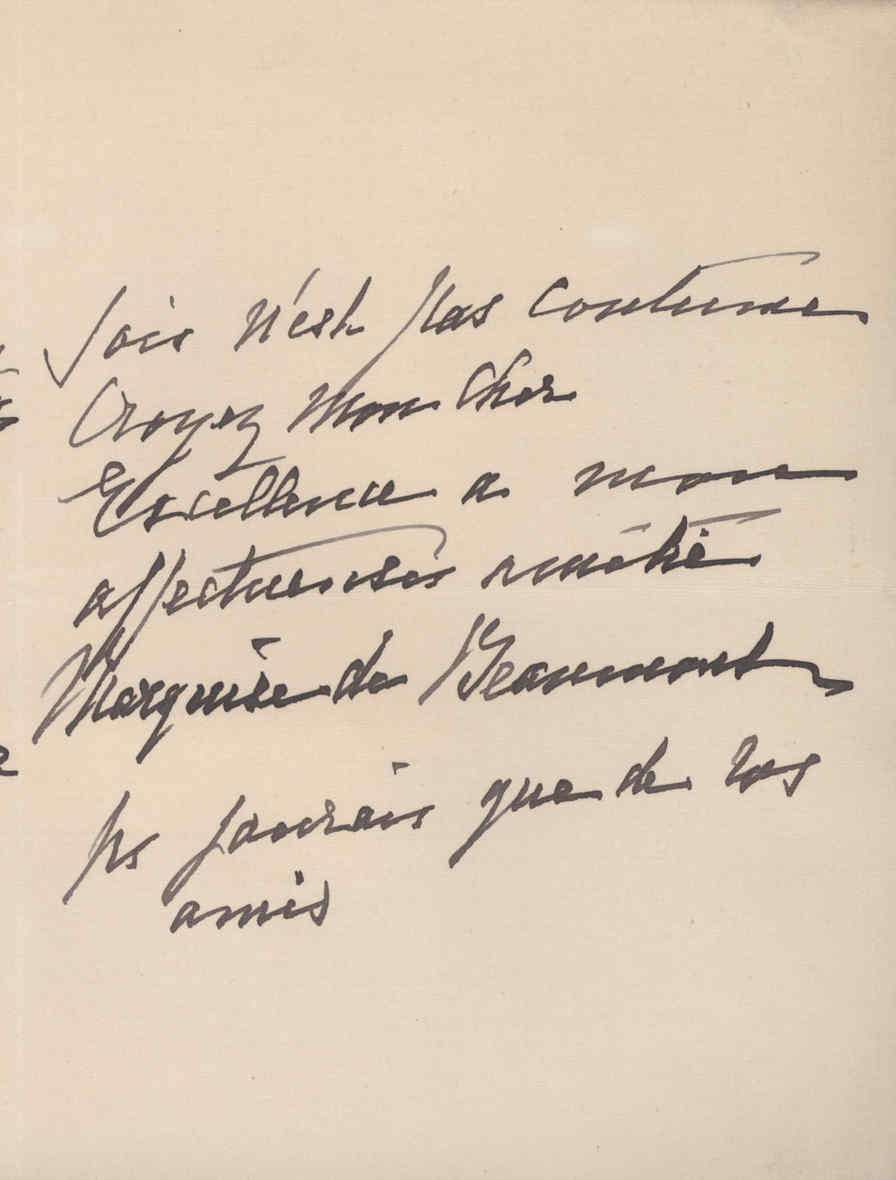 fois n'est pas coutume
Croyez mon Cher
Excellence a mon
affectueuses amitié
Marquise de Beaumont
ps j'aurais que de vos
amis